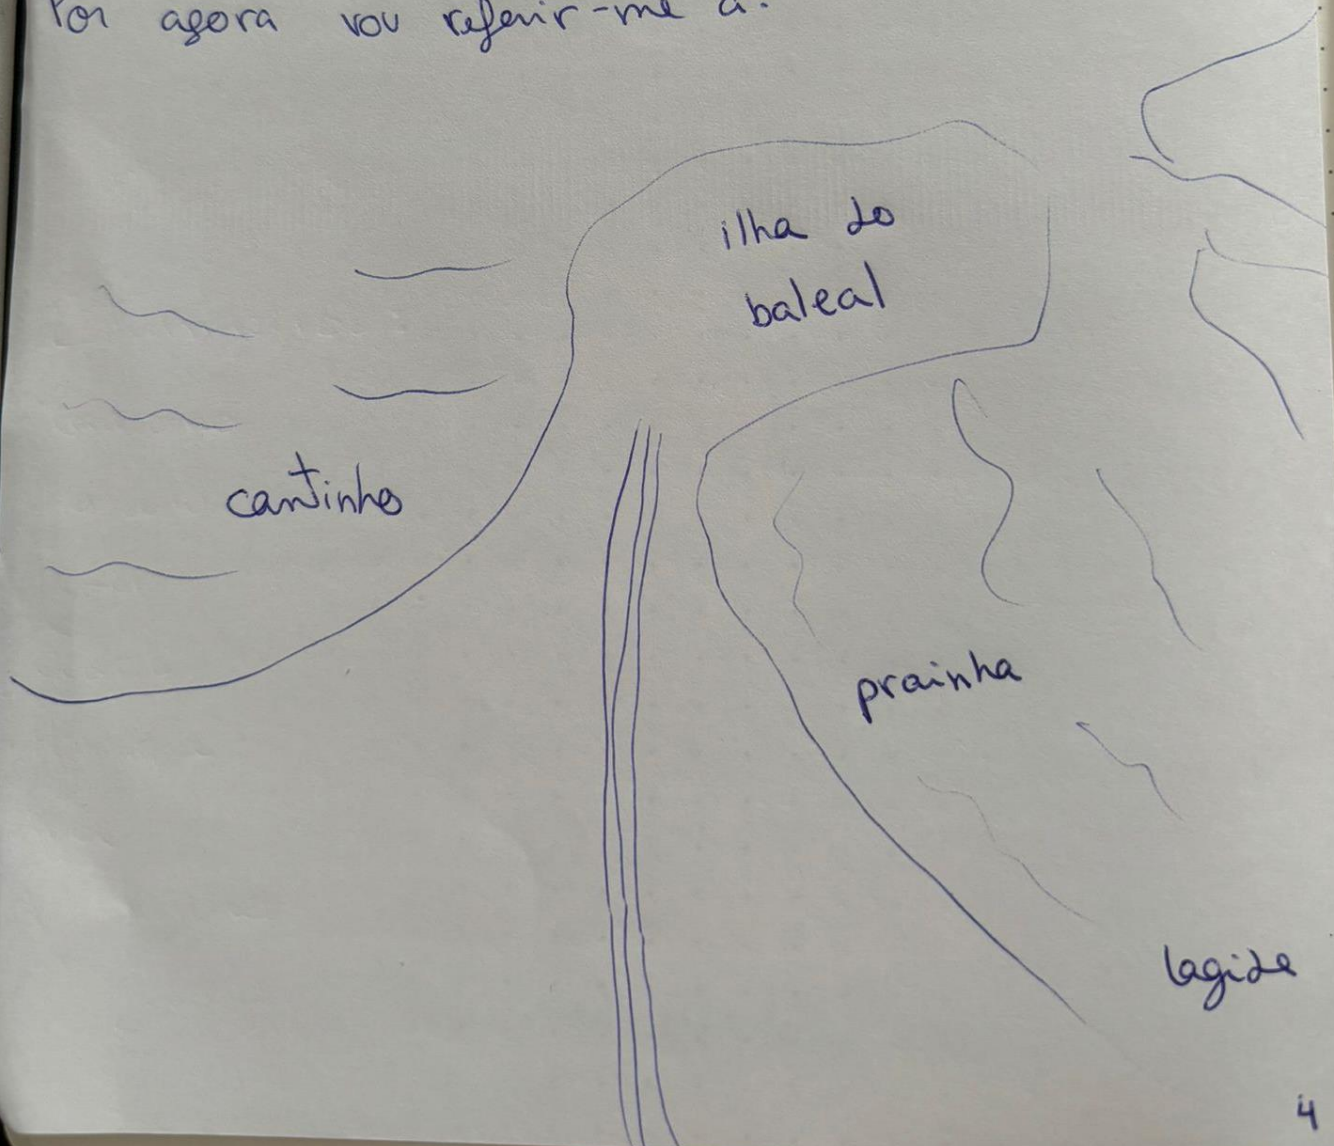 Por agora vou referir-me a:
ilha do
baleal
cantinho
prainha
lagide
4